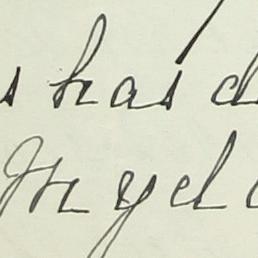 s has d
In yel